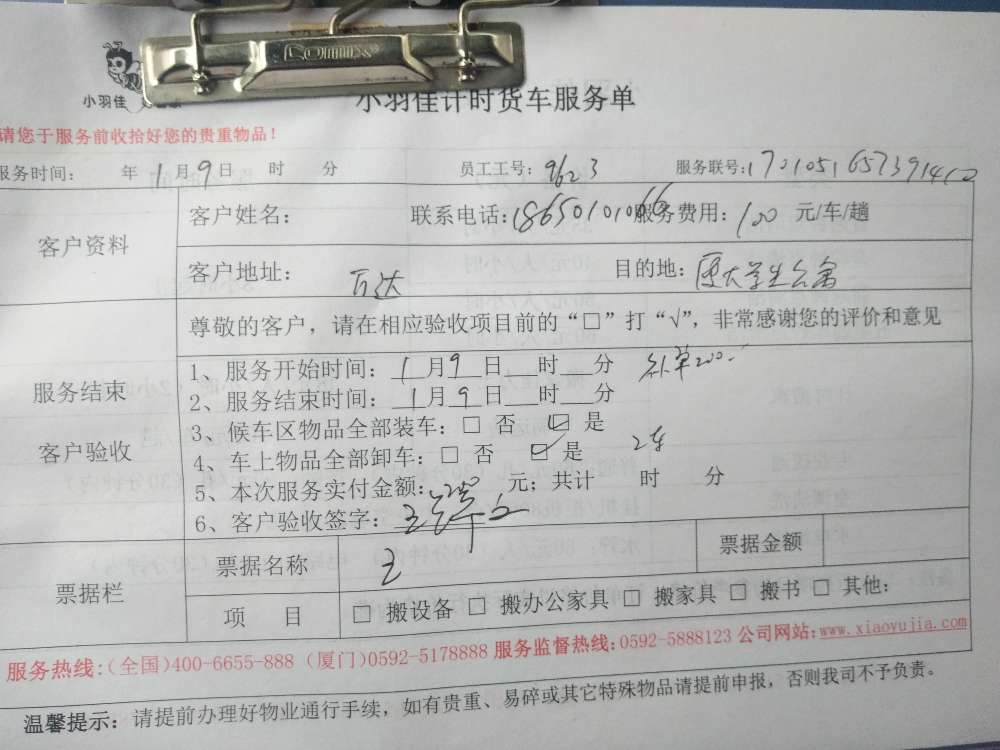 小羽佳
小羽佳计时货车服务单
请您于服务前收拾好您的贵重物品！
服务时间： 年 1 月 9 日 时 分 员工工号：9623 服务联号：
客户资料 客户姓名： 联系电话：18650101066 服务费用：100 元/车/趟
客户地址：万达 目的地：厦大学生公寓
尊敬的客户，请在相应验收项目前的“□”打“√”，非常感谢您的评价和意见
服务结束
客户验收
1、服务开始时间：1 月 9 日 时 分 补单200
2、服务结束时间：1 月 9 日 时 分
3、候车区物品全部装车：□ 否 ☑ 是
4、车上物品全部卸车：□ 否 ☑ 是 2车
5、本次服务实付金额： 元；共计 时 分
6、客户验收签字：
票据栏 票据名称 票据金额
项 目 □ 搬设备 □ 搬办公家具 □ 搬家具 □ 搬书 □ 其他：
服务热线：（全国）400-6655-888（厦门）0592-5178888 服务监督热线：0592-5888123 公司网站：www.xiaoyujia.com
温馨提示：请提前办理好物业通行手续，如有贵重、易碎或其它特殊物品请提前申报，否则我司不予负责。